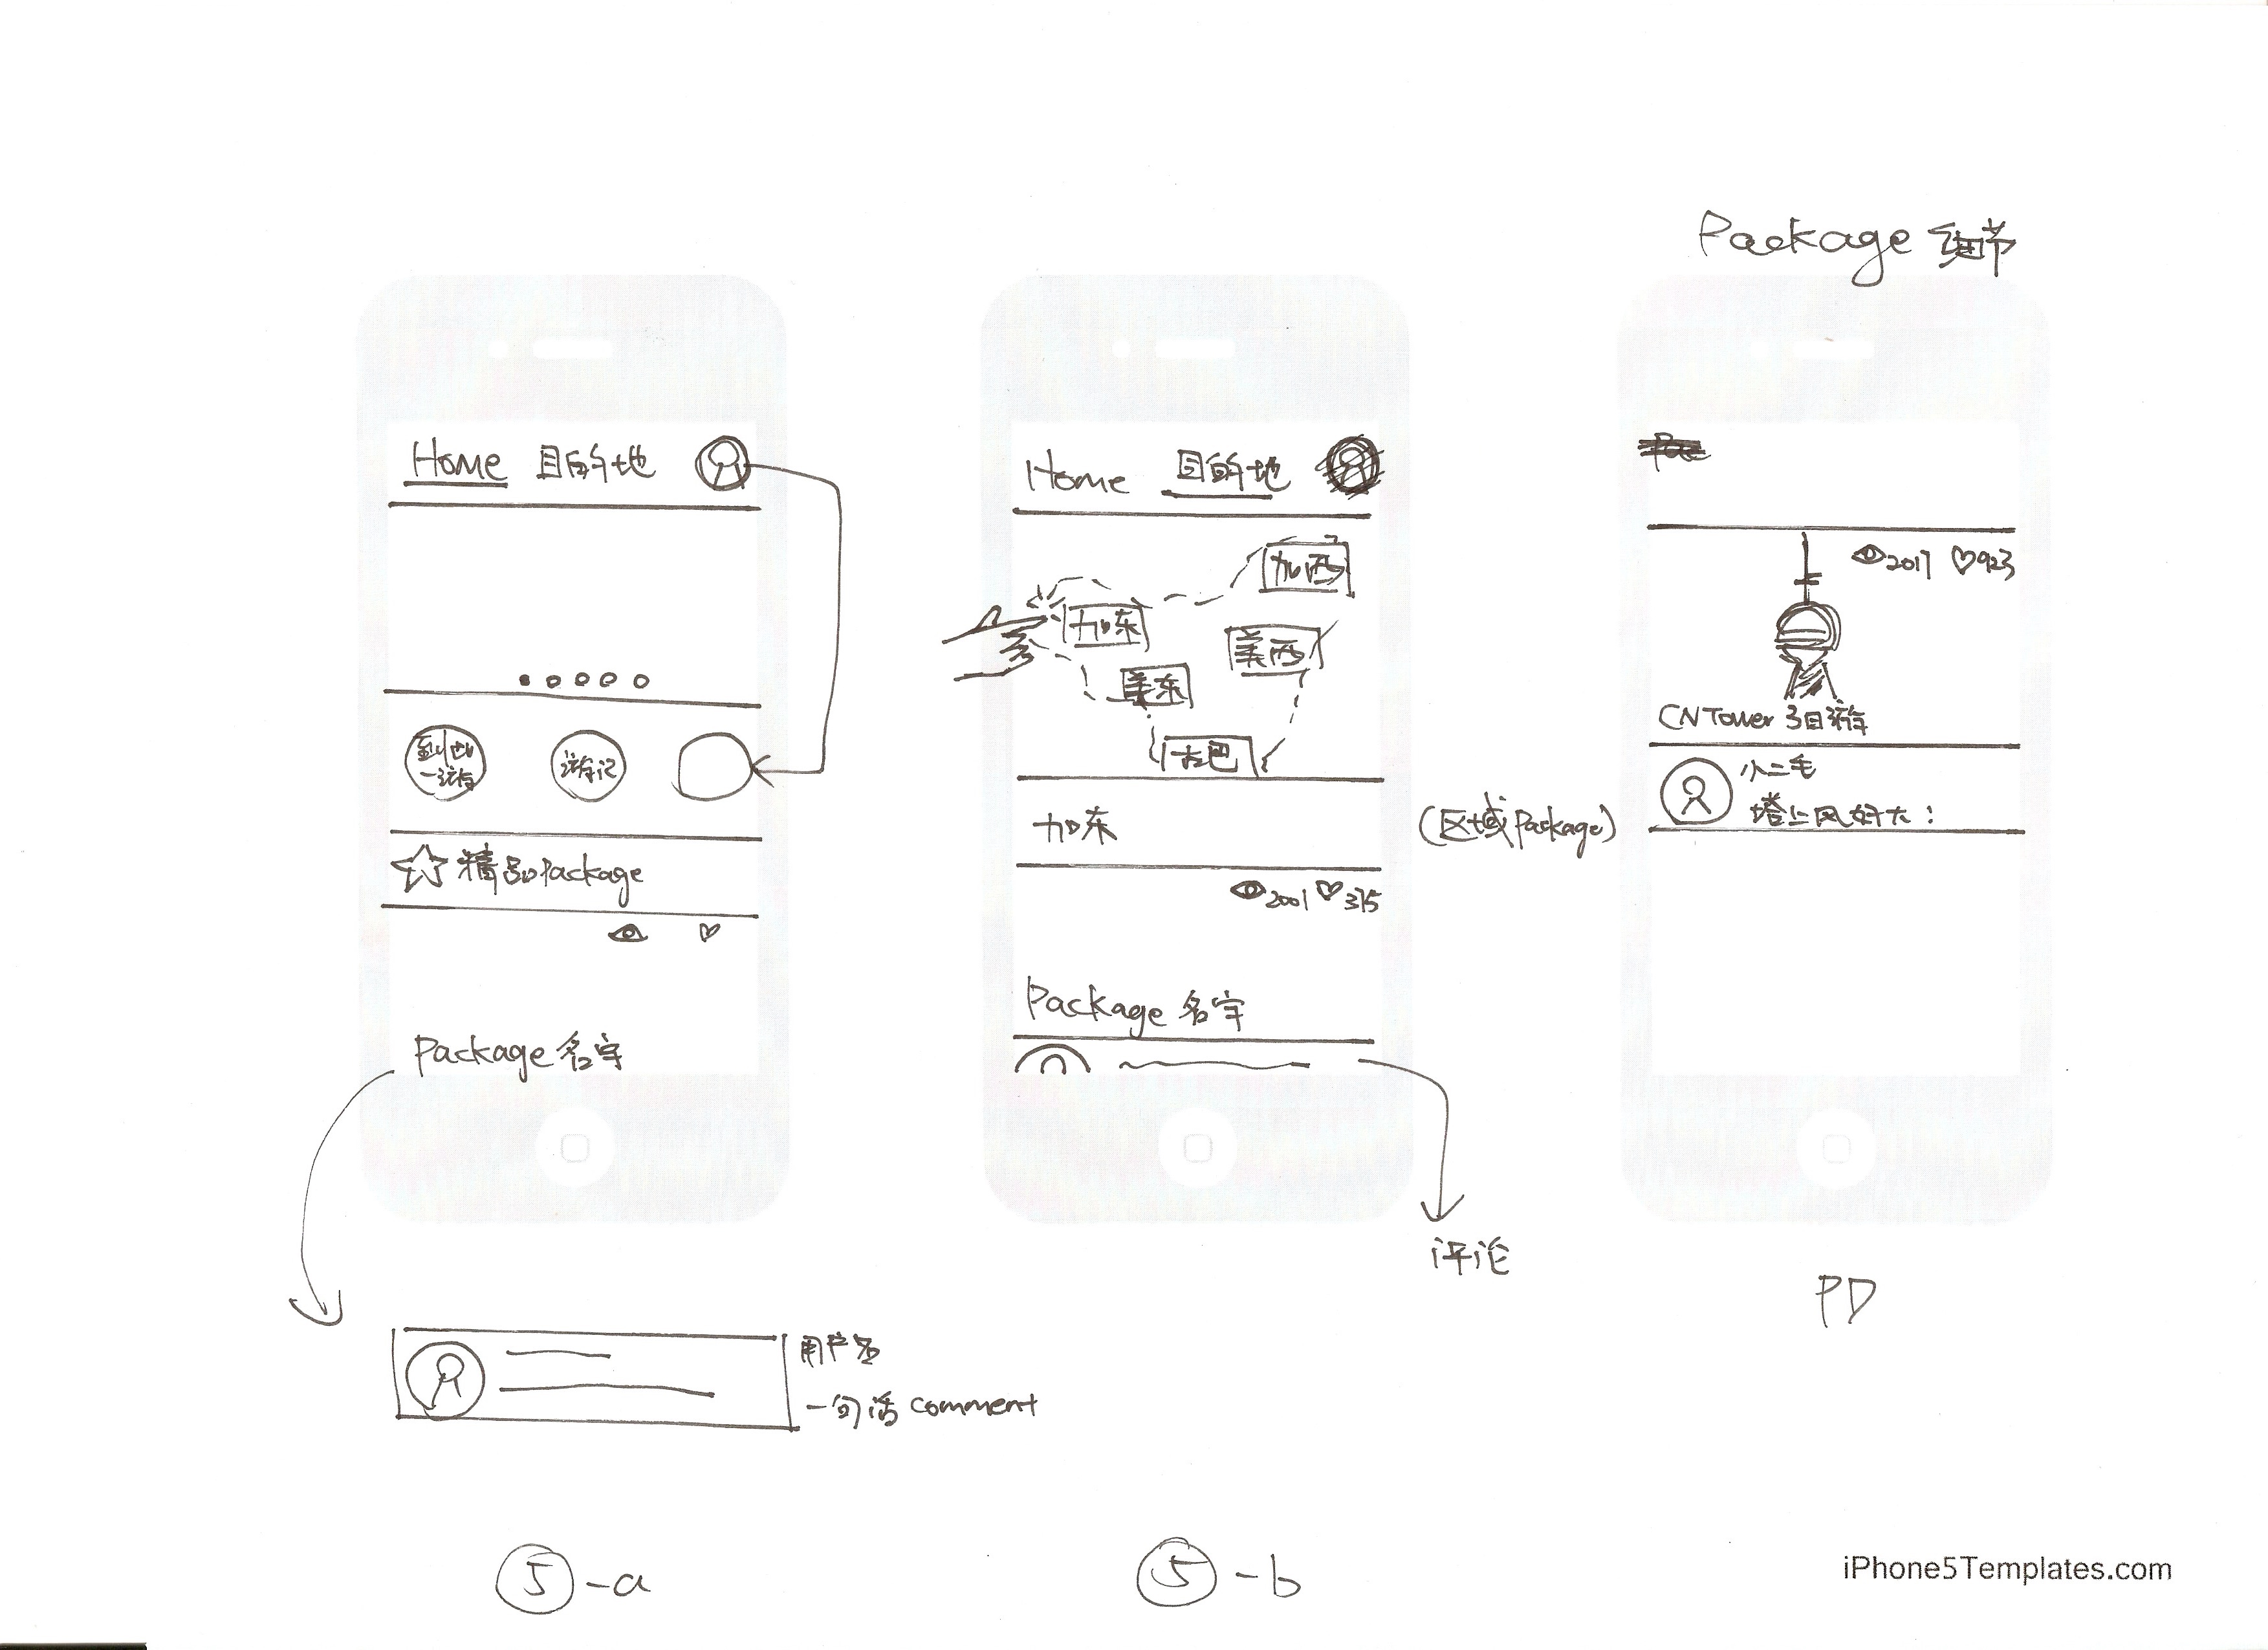 Package 细节
Home 目的地
到此
一游
游记
精品Package
Package 名字
用户名
一句话 comment
⑤-a
Home 目的地
加西
加东
美西
美东
古巴
加东
(区域Package)
2001 315
Package 名字
评论
⑤-b
2017 923
CN Tower 3日游
小二毛
塔上风好大!
PD
iPhone5Templates.com